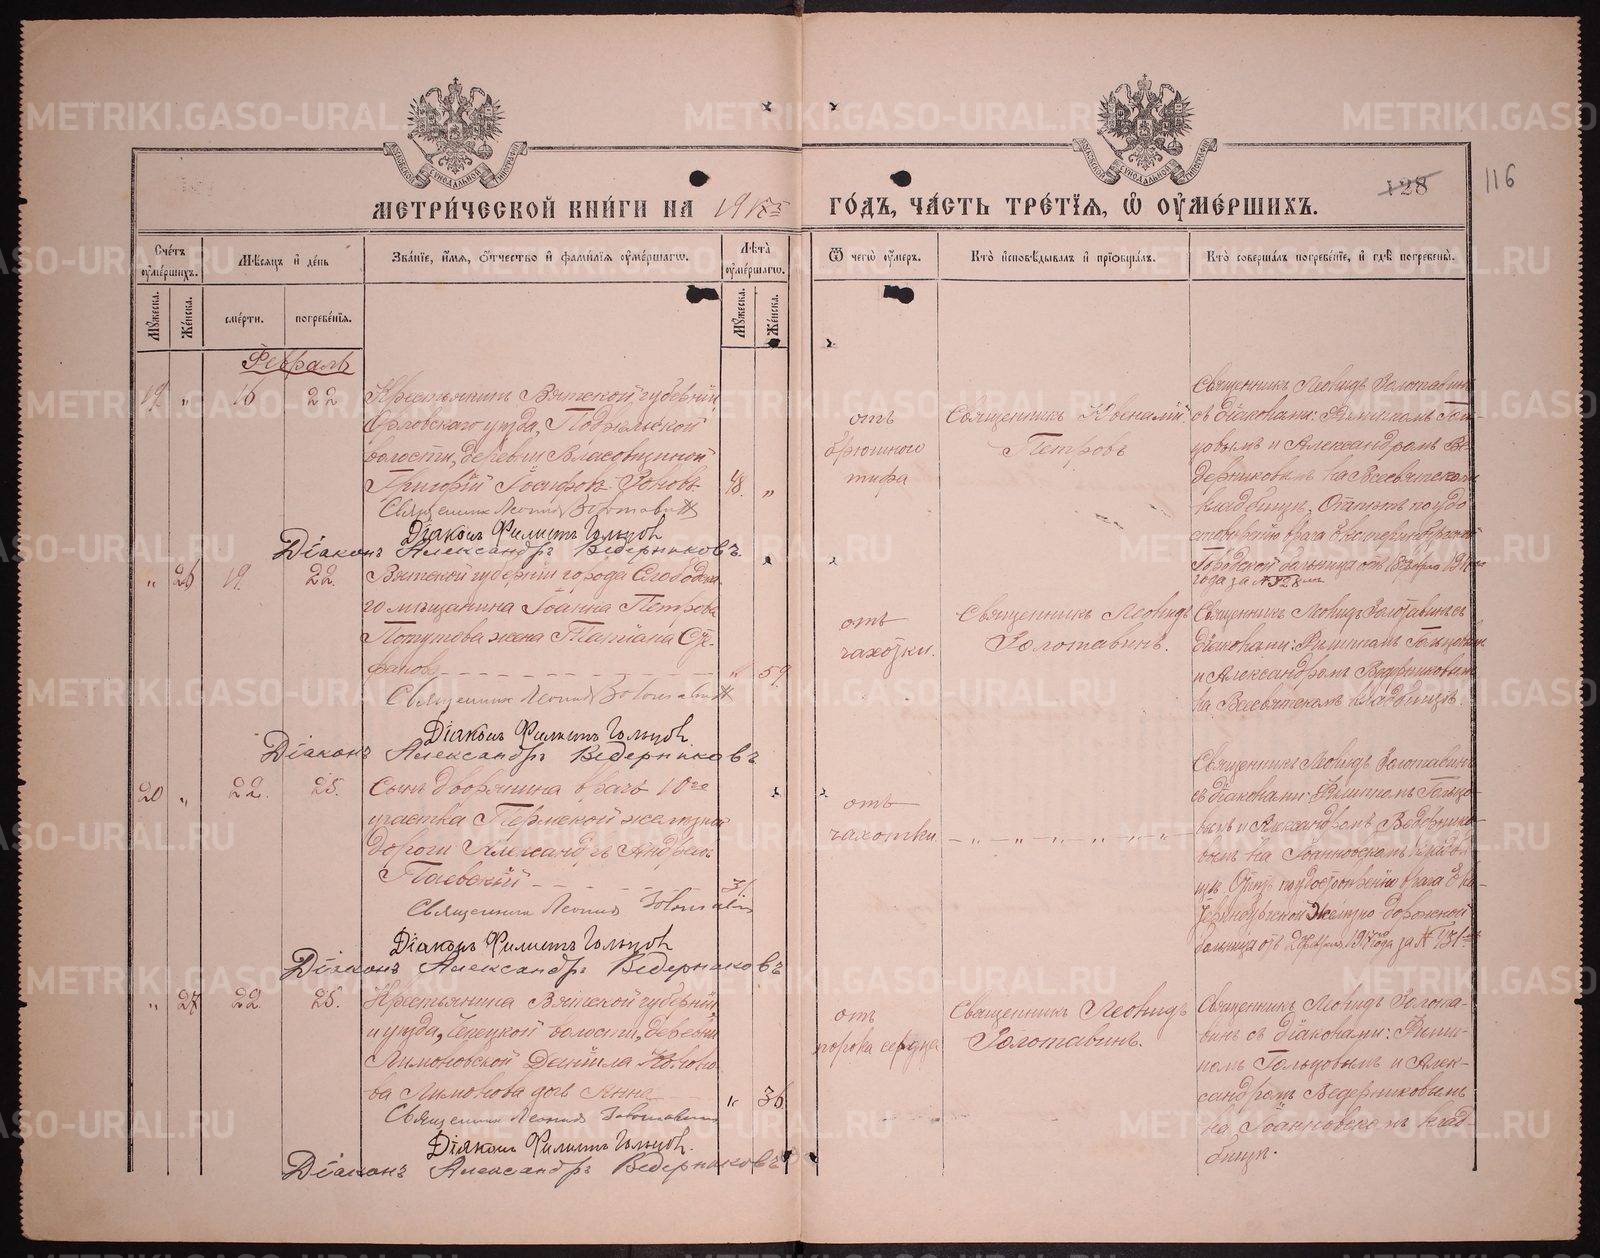 МЕТРИ́ЧЕСКОЙ КНИ́ГИ НА
ГО́ДЪ, ЧА́СТЬ ТРЕ́ТІЯ, Ѡ ОУМЕ́РШИХЪ.
128
116
Сче́тъ оуме́ршихъ.
Мѣсяцъ и де́нь
Зва́ніе, и́мя, о́тчество и фами́лія оуме́ршагѡ.
Лѣ́та оуме́ршагѡ.
Ѿ чегѡ̀ оу́меръ.
Кто̀ и҆сповѣ́дывалъ и прїѡбща́лъ.
Кто̀ соверша́лъ погребе́ніе, и гдѣ̀ погребены̀.
Мꙋ́жеска.
Же́нска.
сме́рти.
погребе́нія.
Мꙋ́жеска.
Же́нска.
Февраль
19 " 16 22
Крестьянинъ Вятской губерніи
Орловскаго уѣзда,
волости, деревни
Григорій Іосифовъ Зоновъ
48 "
Священникъ Леонидъ Золотавинъ
Діаконъ Филиппъ Гольцовъ
Діаконъ Александръ Ведерниковъ
отъ
брюшного
тифа
Священникъ
Петровъ
Священникъ Леонидъ Золотавинъ
съ діаконами: ФилиппомъГоль-
цовымъ и Александромъ Ве-
дерниковымъ на Всесвятскомъ
кладбищѣ.
врача Екатеринбургской
Городской больницы отъ
года за №
" 26 19 22.
Вятской губерніи города Слободска-
го мѣщанина Іоанна Петрова
жена Татіана Сте-
фанова
" 59
Священникъ Леонидъ Золотавинъ
Діаконъ Филиппъ Гольцовъ
Діаконъ Александръ Ведерниковъ
отъ
чахотки.
Священникъ Леонидъ
Золотавинъ.
Священникъ Леонидъ Золотавинъ съ
діаконами: Филиппомъ Гольцовымъ
и Александромъ Ведерниковымъ
на Всесвятскомъ кладбищѣ.
20 " 22. 25.
Сынъ дворянина врачъ 10го
участка Пермской желѣзной
дороги Александръ Андреевъ
31.
Священникъ Леонидъ Золотавинъ
Діаконъ Филиппъ Гольцовъ
Діаконъ Александръ Ведерниковъ
отъ
чахотки.
Священникъ Леонидъ Золотавинъ
съ діаконами: Филиппомъ Гольцо-
вымъ и Александромъ Ведернико-
вымъ на Іоанновскомъ кладби-
щѣ. врача Ека-
теринбургской Желѣзно-дорожной
больницы отъ года за №
" 27 22. 25.
Крестьянина Вятской губерніи
и уѣзда, волости, деревни
Лимоновской Даніила
Лимонова дочь Анна
" 36
Священникъ Леонидъ Золотавинъ
Діаконъ Филиппъ Гольцовъ.
Діаконъ Александръ Ведерниковъ
отъ
порока сердца
Священникъ Леонидъ
Золотавинъ.
Священникъ Леонидъ Золота-
винъ съ діаконами: Филип-
помъ Гольцовымъ и Алек-
сандромъ Ведерниковымъ
на Іоанновскомъ клад-
бищѣ.
METRIKI.GASO-URAL.RU